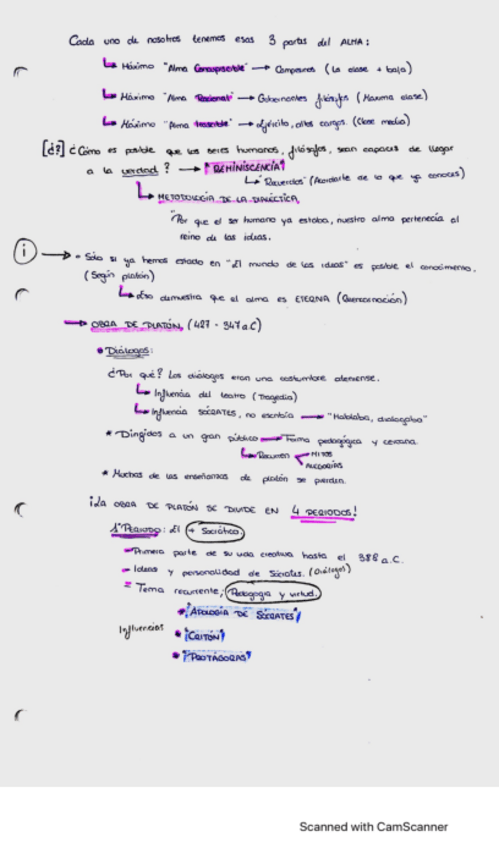 Cada uno de nosotros tenemos esas 3 partes del ALMA:
Máximo "Alma Concupiscible" → Campesinos (La clase + baja)
Máximo "Alma Racional" → Gobernantes filósfos (Maxima clase)
Máximo "Alma Irascible" → ejército, altos cargos. (Clase media)
[d?] ¿Cómo es posible que los seres humanos, filósofos, sean capaces de llegar
a la verdad? → "REMINISCENCIA"
"Recuerdos" (Acordarte de lo que ya conoces)
METODOLOGÍA DE LA DIALÉCTICA,
"Por que el ser humano ya estaba, nuestro alma pertenecía al
reino de las ideas.
(i) → • Solo si ya hemos estado en "El mundo de las ideas" es posible el conocimiento.
(Según platón)
Eso demuestra que el alma es ETERNA (Reencarnación)
→ OBRA DE PLATÓN, (427 - 347 a.C)
• Diálogos:
¿Por qué? Los diálogos eran una costumbre ateniense.
Influencia del teatro (Tragedia)
Influencia SÓCRATES, no escribía → "Hablaba, dialogaba"
* Dirigidos a un gran público → Forma pedagógica y cercana.
Recurren < MITOS
ALEGORÍAS
* Muchas de las enseñanzas de platón se pierden.
¡La OBRA DE PLATÓN SE DIVIDE EN 4 PERIODOS!
1º PERIODO: El + Socrático.
- Primera parte de su vida creativa hasta el 388 a.C.
- Ideas y personalidad de Sócrates. (Diálogos)
= Tema recurrente; Pedagogía y virtud.
* "APOLOGÍA DE SÓCRATES"
Influencias • "CRITÓN"
* "PROTÁGORAS"
Scanned with CamScanner